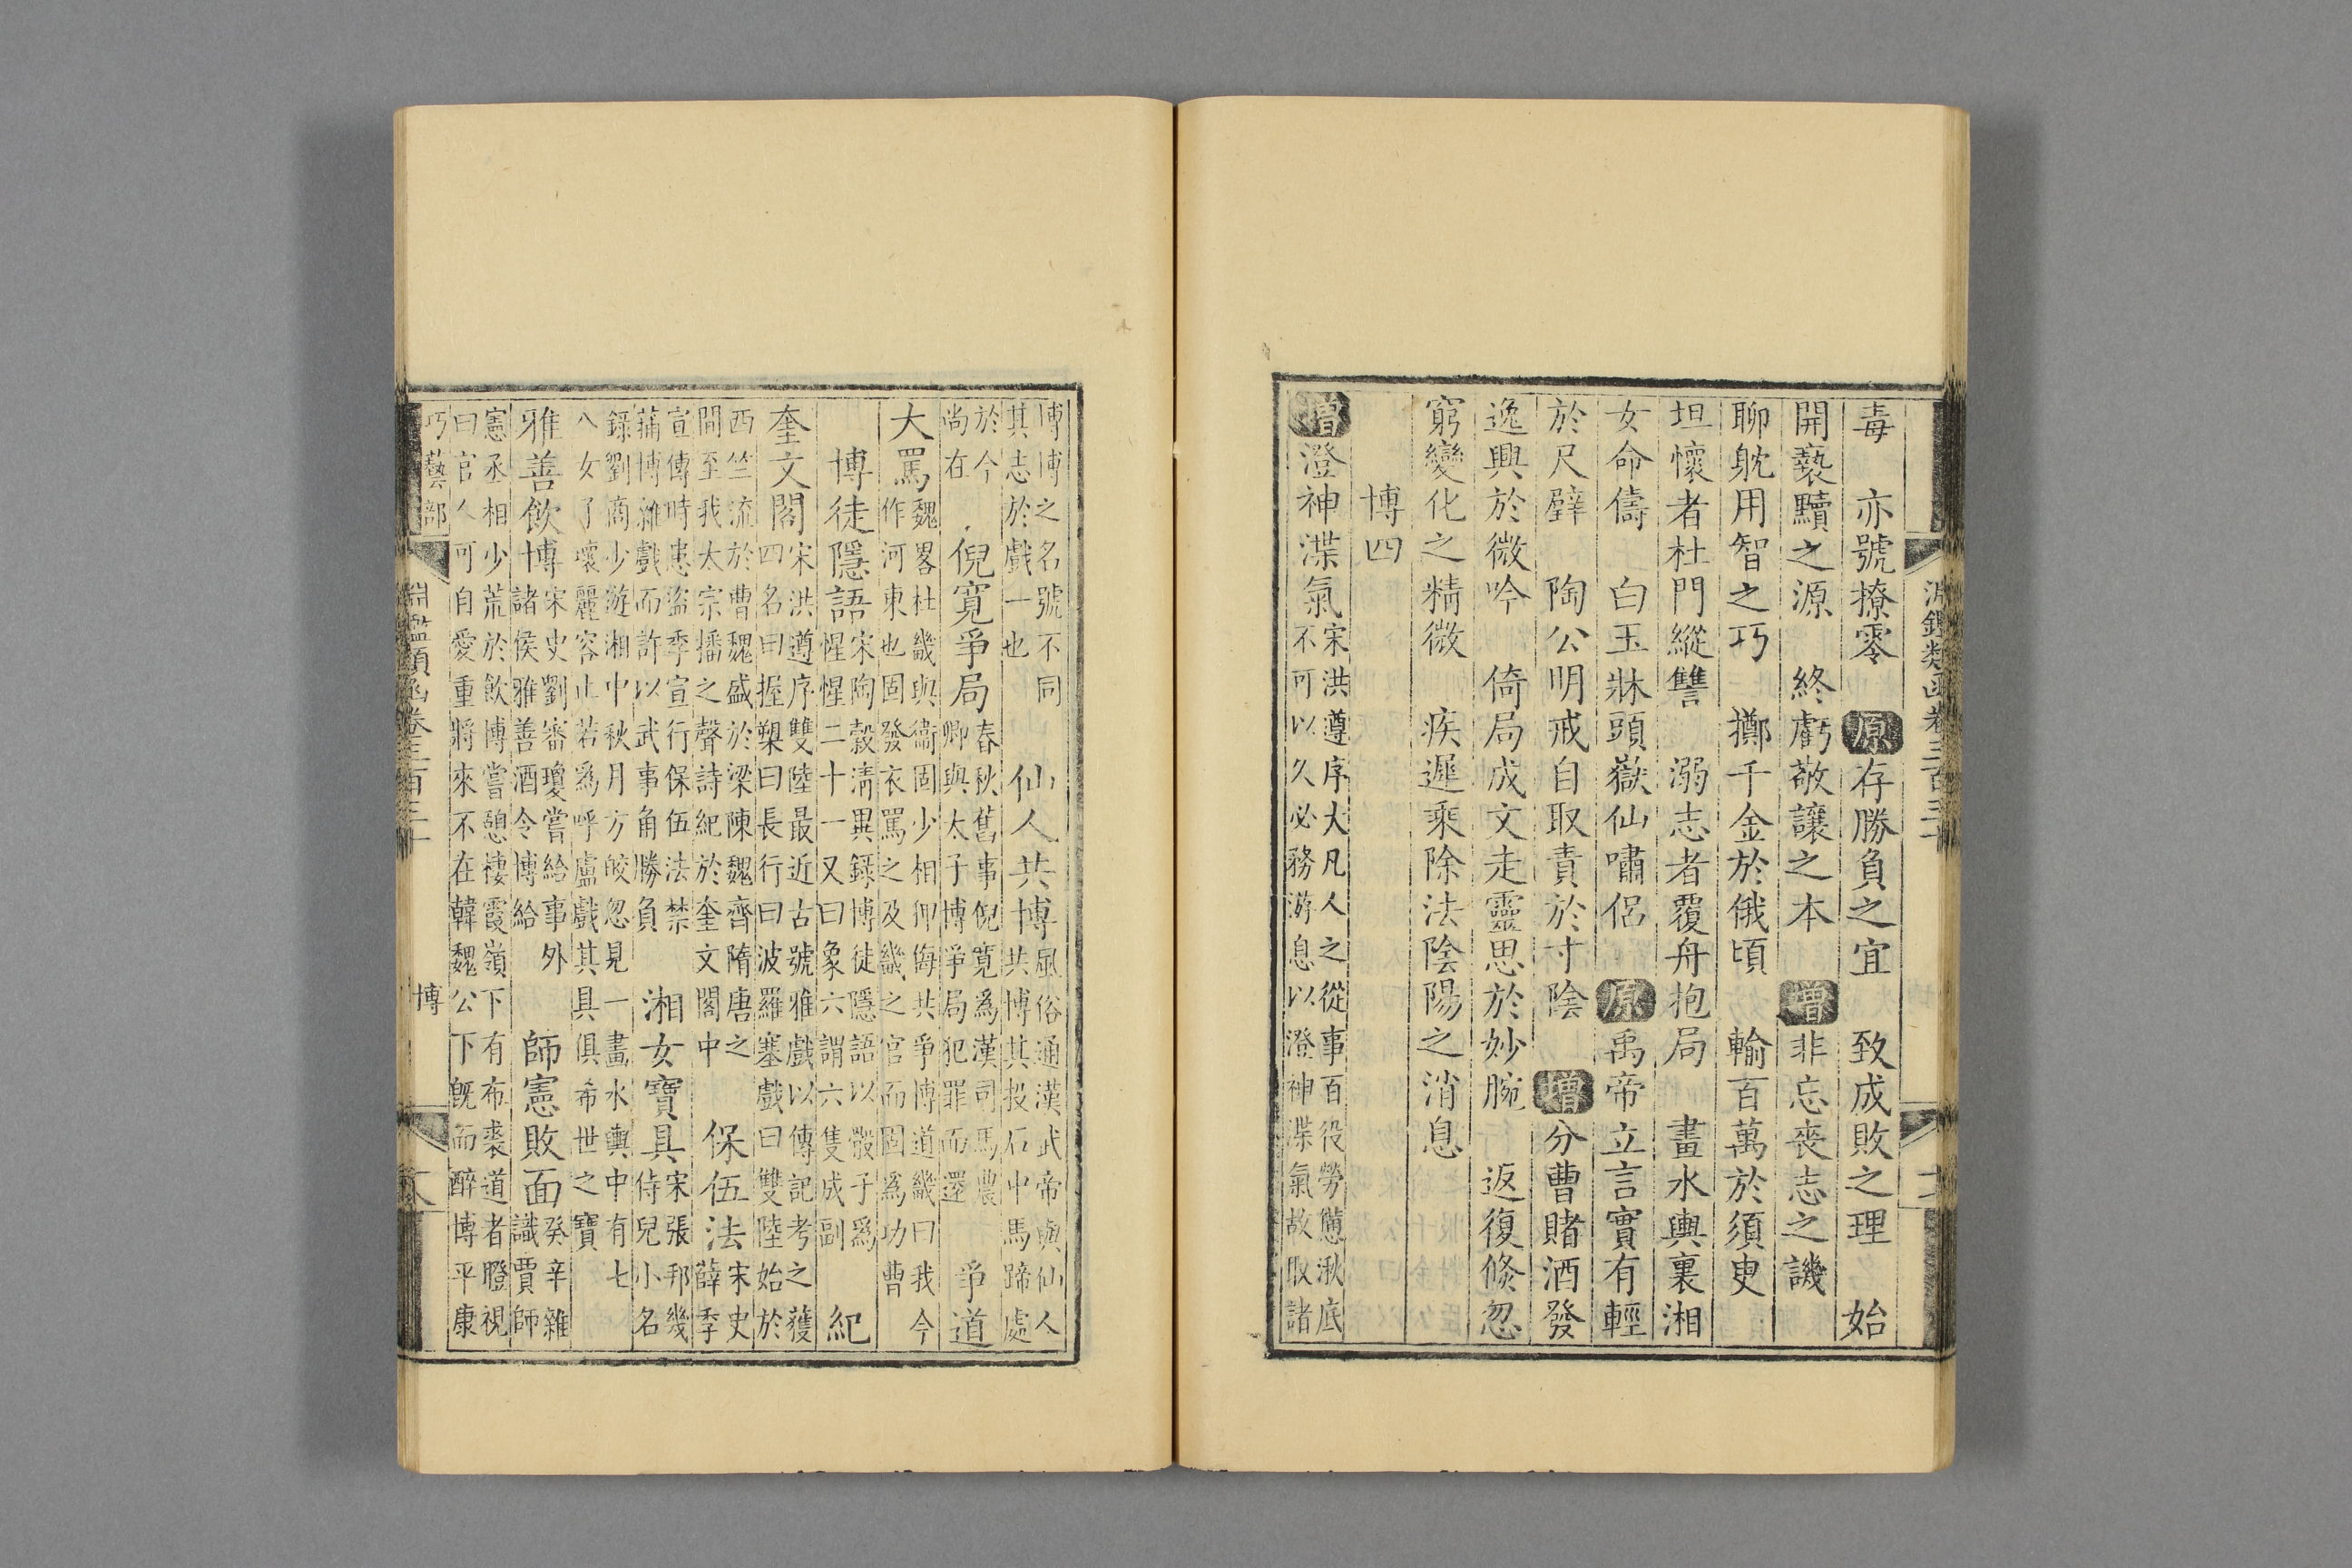 淵鑑類函卷三百三十
毒　亦號撩零　原　存勝負之宜　致成敗之理　始
開褻黷之源　終虧敬讓之本　增　非忘喪志之譏
聊躭用智之巧　擲千金於俄頃　輸百萬於須臾
坦懷者杜門縱讐　溺志者覆舟抱局　畫水輿裏湘
女命儔　白玉牀頭嶽仙嘯侶　原　禹帝立言實有輕
於尺璧　陶公明戒自取責於寸陰　增　分曹賭酒發
逸興於微吟　倚局成文走靈思於妙腕　返復倐忽
窮變化之精微　疾遲乘除法陰陽之消息
博四
增　澄神渫氣　宋洪遵序大凡人之從事百役勞憊湫底
不可以久必務游息以澄神渫氣故取諸
博博之名號不同
其志於戲一也　仙人共博　風俗通漢武帝與仙人
共博其投石中馬蹄處
於今
尚在　倪寛爭局　春秋舊事倪寛爲漢司馬農
卿與太子博爭局犯罪而還　爭道
大罵　魏畧杜畿與衞固少相侮共爭博道畿曰我今
作河東也固發衣罵之及畿之官而固爲功曹
博徒隱語　宋陶穀清異録博徒隱語以骰子爲
惺惺二十一又曰象六謂六隻成副　紀
奎文閣　宋洪遵序雙陸最近古號雅戲以傳記考之獲
四名曰握槊曰長行曰波羅塞戲曰雙陸始於
西竺流於曹魏盛於梁陳魏齊隋唐之
間至我太宗播之聲詩紀於奎文閣中　保伍法　宋史
薛季
宣傳時患盜季宣行保伍法禁
蒱博雜戲而許以武事角勝負　湘女寶具　宋張邦幾
侍兒小名
録劉商少遊湘中秋月方皎忽見一畫水輿中有七
八女子壞麗容止若爲呼盧戲其具俱希世之寶
雅善飲博　宋史劉審瓊嘗給事外
諸侯雅善酒令博給　師憲敗面　癸辛雜
識賈師
憲丞相少荒於飲博嘗憩棲霞嶺下有布裘道者瞪視
曰官人可自愛重將來不在韓魏公下旣而醉博平康
巧藝部　淵鑑類函卷三百三十　博